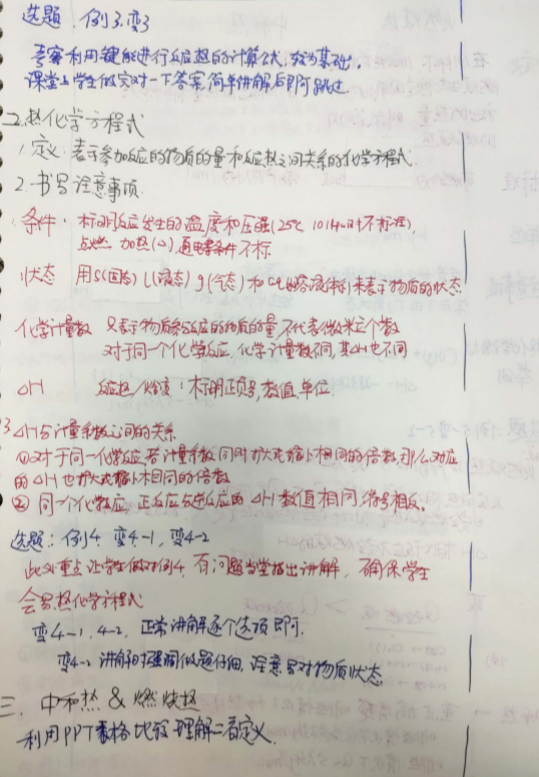 选题:例3.变3
考察利用键能进行反应热的计算公式,较为基础,
课堂上学生做完对一下答案简单讲解后即可跳过
二.热化学方程式
1.定义:表示参加反应的物质的量和反应热之间关系的化学方程式
2.书写注意事项
条件:标明反应发生的温度和压强(25℃ 101kPa时不标注),
点燃 加热(△),通电等条件不标
状态 用s(固态) l(液态) g(气态) 和 aq(溶液)来表示物质的状态
化学计量数 只表示物质参与反应的物质的量,不代表微粒个数
对于同一个化学反应,化学计量数不同,其△H也不同
△H 反应热/焓变:标明正负号,数值,单位.
3 △H与计量系数之间的关系
①对于同一化学反应,若计量系数同时扩大或缩小相同的倍数,那么对应
的△H也扩大或缩小相同的倍数
② 同一个化学反应,正反应与逆反应的△H数值相同,符号相反.
选题:例4 变4-1,变4-2
此为重点 让学生做对例4,有问题当堂指出讲解,确保学生
会写热化学方程式
变4-1,4-2,正常讲解逐个选项即可.
变4-2 讲解时强调做题仔细,注意写对物质状态
三.中和热 & 燃烧热
利用PPT表格比较理解二者定义.